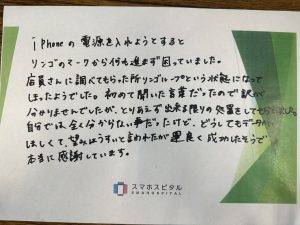 iPhoneの電源を入れようとすると
リンゴのマークから何も進まず困っていました。
店員さんに調べてもらった所リンゴループという状態になって
しまったようでした。初めて聞いた言葉だったので訳が
分かりませんでしたが、とりあえず出来る限りの処置をしてもらいました。
自分では、全く分からない事だったけど、どうしてもデータが
ほしくて、望みはうすいと言われたが運良く成功したそうで
本当に感謝しています。
スマホスピタル
SMAHOSPITAL